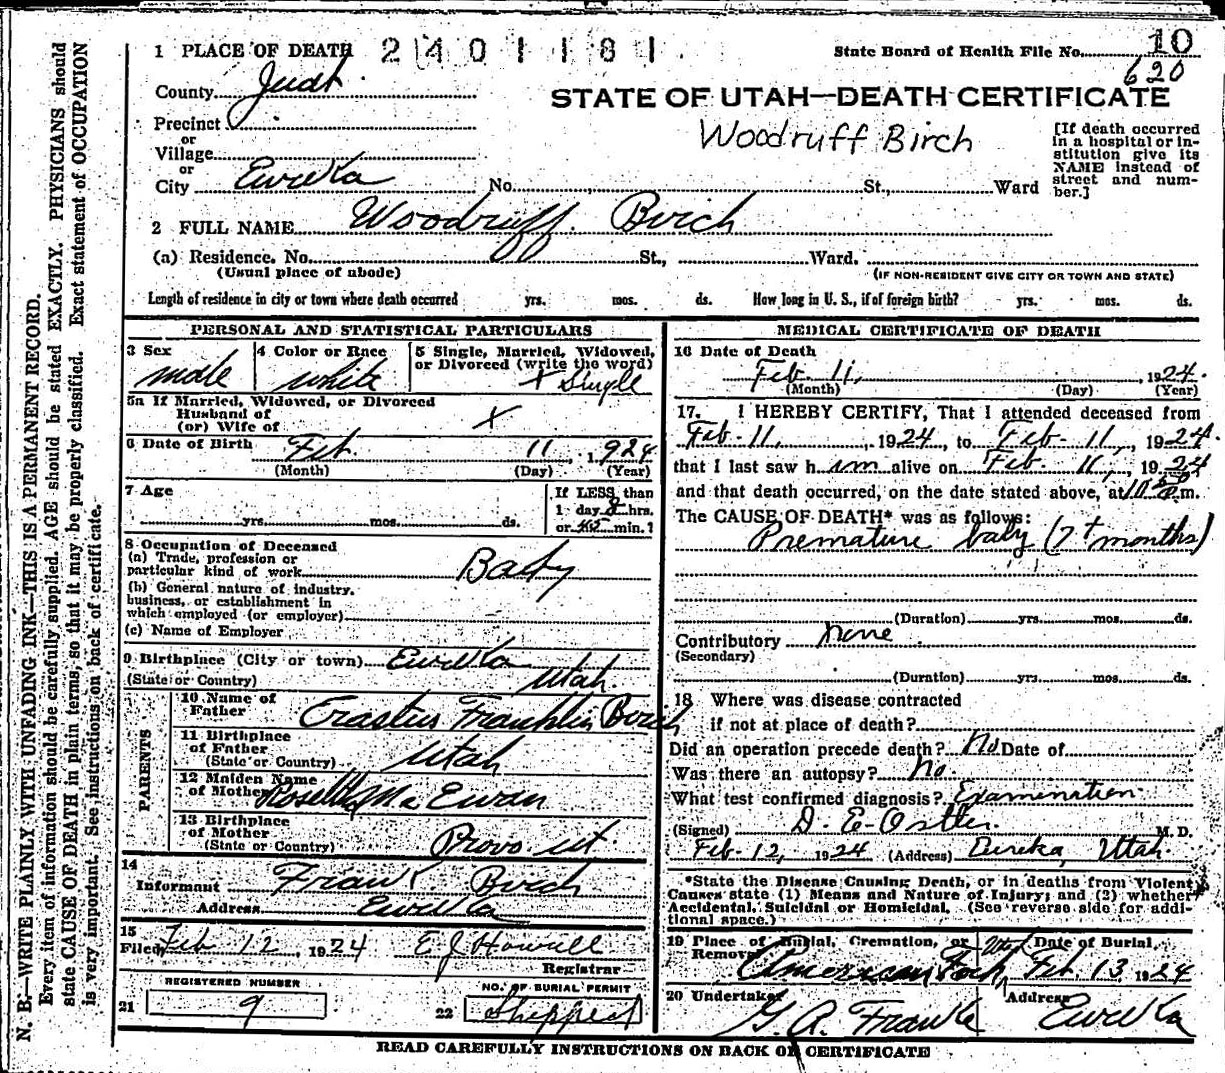 1 PLACE OF DEATH 2401181. State Board of Health File No. 10
620
County Juab.
STATE OF UTAH—DEATH CERTIFICATE
Precinct
or
Village
or
City Eureka No. , St., Ward
Woodruff Birch
[If death occurred
in a hospital or in-
stitution give its
NAME instead of
street and num-
ber.]
2 FULL NAME Woodruff Birch
(a) Residence. No. St., Ward.
(Usual place of abode) (IF NON-RESIDENT GIVE CITY OR TOWN AND STATE)
Length of residence in city or town where death occurred yrs. mos. ds. How long in U. S., if of foreign birth? yrs. mos. ds.
PERSONAL AND STATISTICAL PARTICULARS
3 Sex
male
4 Color or Race
white
5 Single, Married, Widowed,
or Divorced (write the word)
x Single
5a If Married, Widowed, or Divorced
Husband of
(or) Wife of x
6 Date of Birth Feb. 11, 1924
(Month) (Day) (Year)
7 Age
yrs. mos. ds.
If LESS than
1 day 8 hrs.
or 45 min.?
8 Occupation of Deceased
(a) Trade, profession or
particular kind of work Baby
(b) General nature of industry,
business, or establishment in
which employed (or employer)
(c) Name of Employer
9 Birthplace (City or town) Eureka
(State or Country) Utah
PARENTS
10 Name of
Father Erastus Franklin Birch
11 Birthplace
of Father
(State or Country) Utah
12 Maiden Name
of Mother Mc Ewan
13 Birthplace
of Mother
(State or Country) Provo ut.
14
Informant Frank Birch
Address Eureka
15
Filed Feb 12, 1924 E J Howell
Registrar
21 REGISTERED NUMBER
9
22 NO. OF BURIAL PERMIT
Shipped
MEDICAL CERTIFICATE OF DEATH
16 Date of Death
Feb. 11, 1924.
(Month) (Day) (Year)
17. I HEREBY CERTIFY, That I attended deceased from
Feb-11, 1924, to Feb-11, 1924.
that I last saw him alive on Feb. 11, 1924
and that death occurred, on the date stated above, at 10 m.
The CAUSE OF DEATH* was as follows:
Premature baby (7+ months)
(Duration) yrs. mos. ds.
Contributory none
(Secondary)
(Duration) yrs. mos. ds.
18 Where was disease contracted
if not at place of death?
Did an operation precede death? No. Date of
Was there an autopsy? No.
What test confirmed diagnosis? Examination.
(Signed) D. E. Ostler. M. D.
Feb-12, 1924 (Address) Eureka, Utah.
*State the Disease Causing Death, or in deaths from Violent
Causes state (1) Means and Nature of Injury; and (2) whether
Accidental, Suicidal or Homicidal. (See reverse side for addi-
tional space.)
19 Place of Burial, Cremation, or Utah Date of Burial,
Removal American Fork, Feb. 13, 1924
20 Undertaker G. A. Franke Address Eureka
READ CAREFULLY INSTRUCTIONS ON BACK OF CERTIFICATE
N. B.—WRITE PLAINLY WITH UNFADING INK—THIS IS A PERMANENT RECORD.
Every item of information should be carefully supplied. AGE should be stated EXACTLY. PHYSICIANS should
state CAUSE OF DEATH in plain terms, so that it may be properly classified. Exact statement of OCCUPATION
is very important. See instructions on back of certificate.